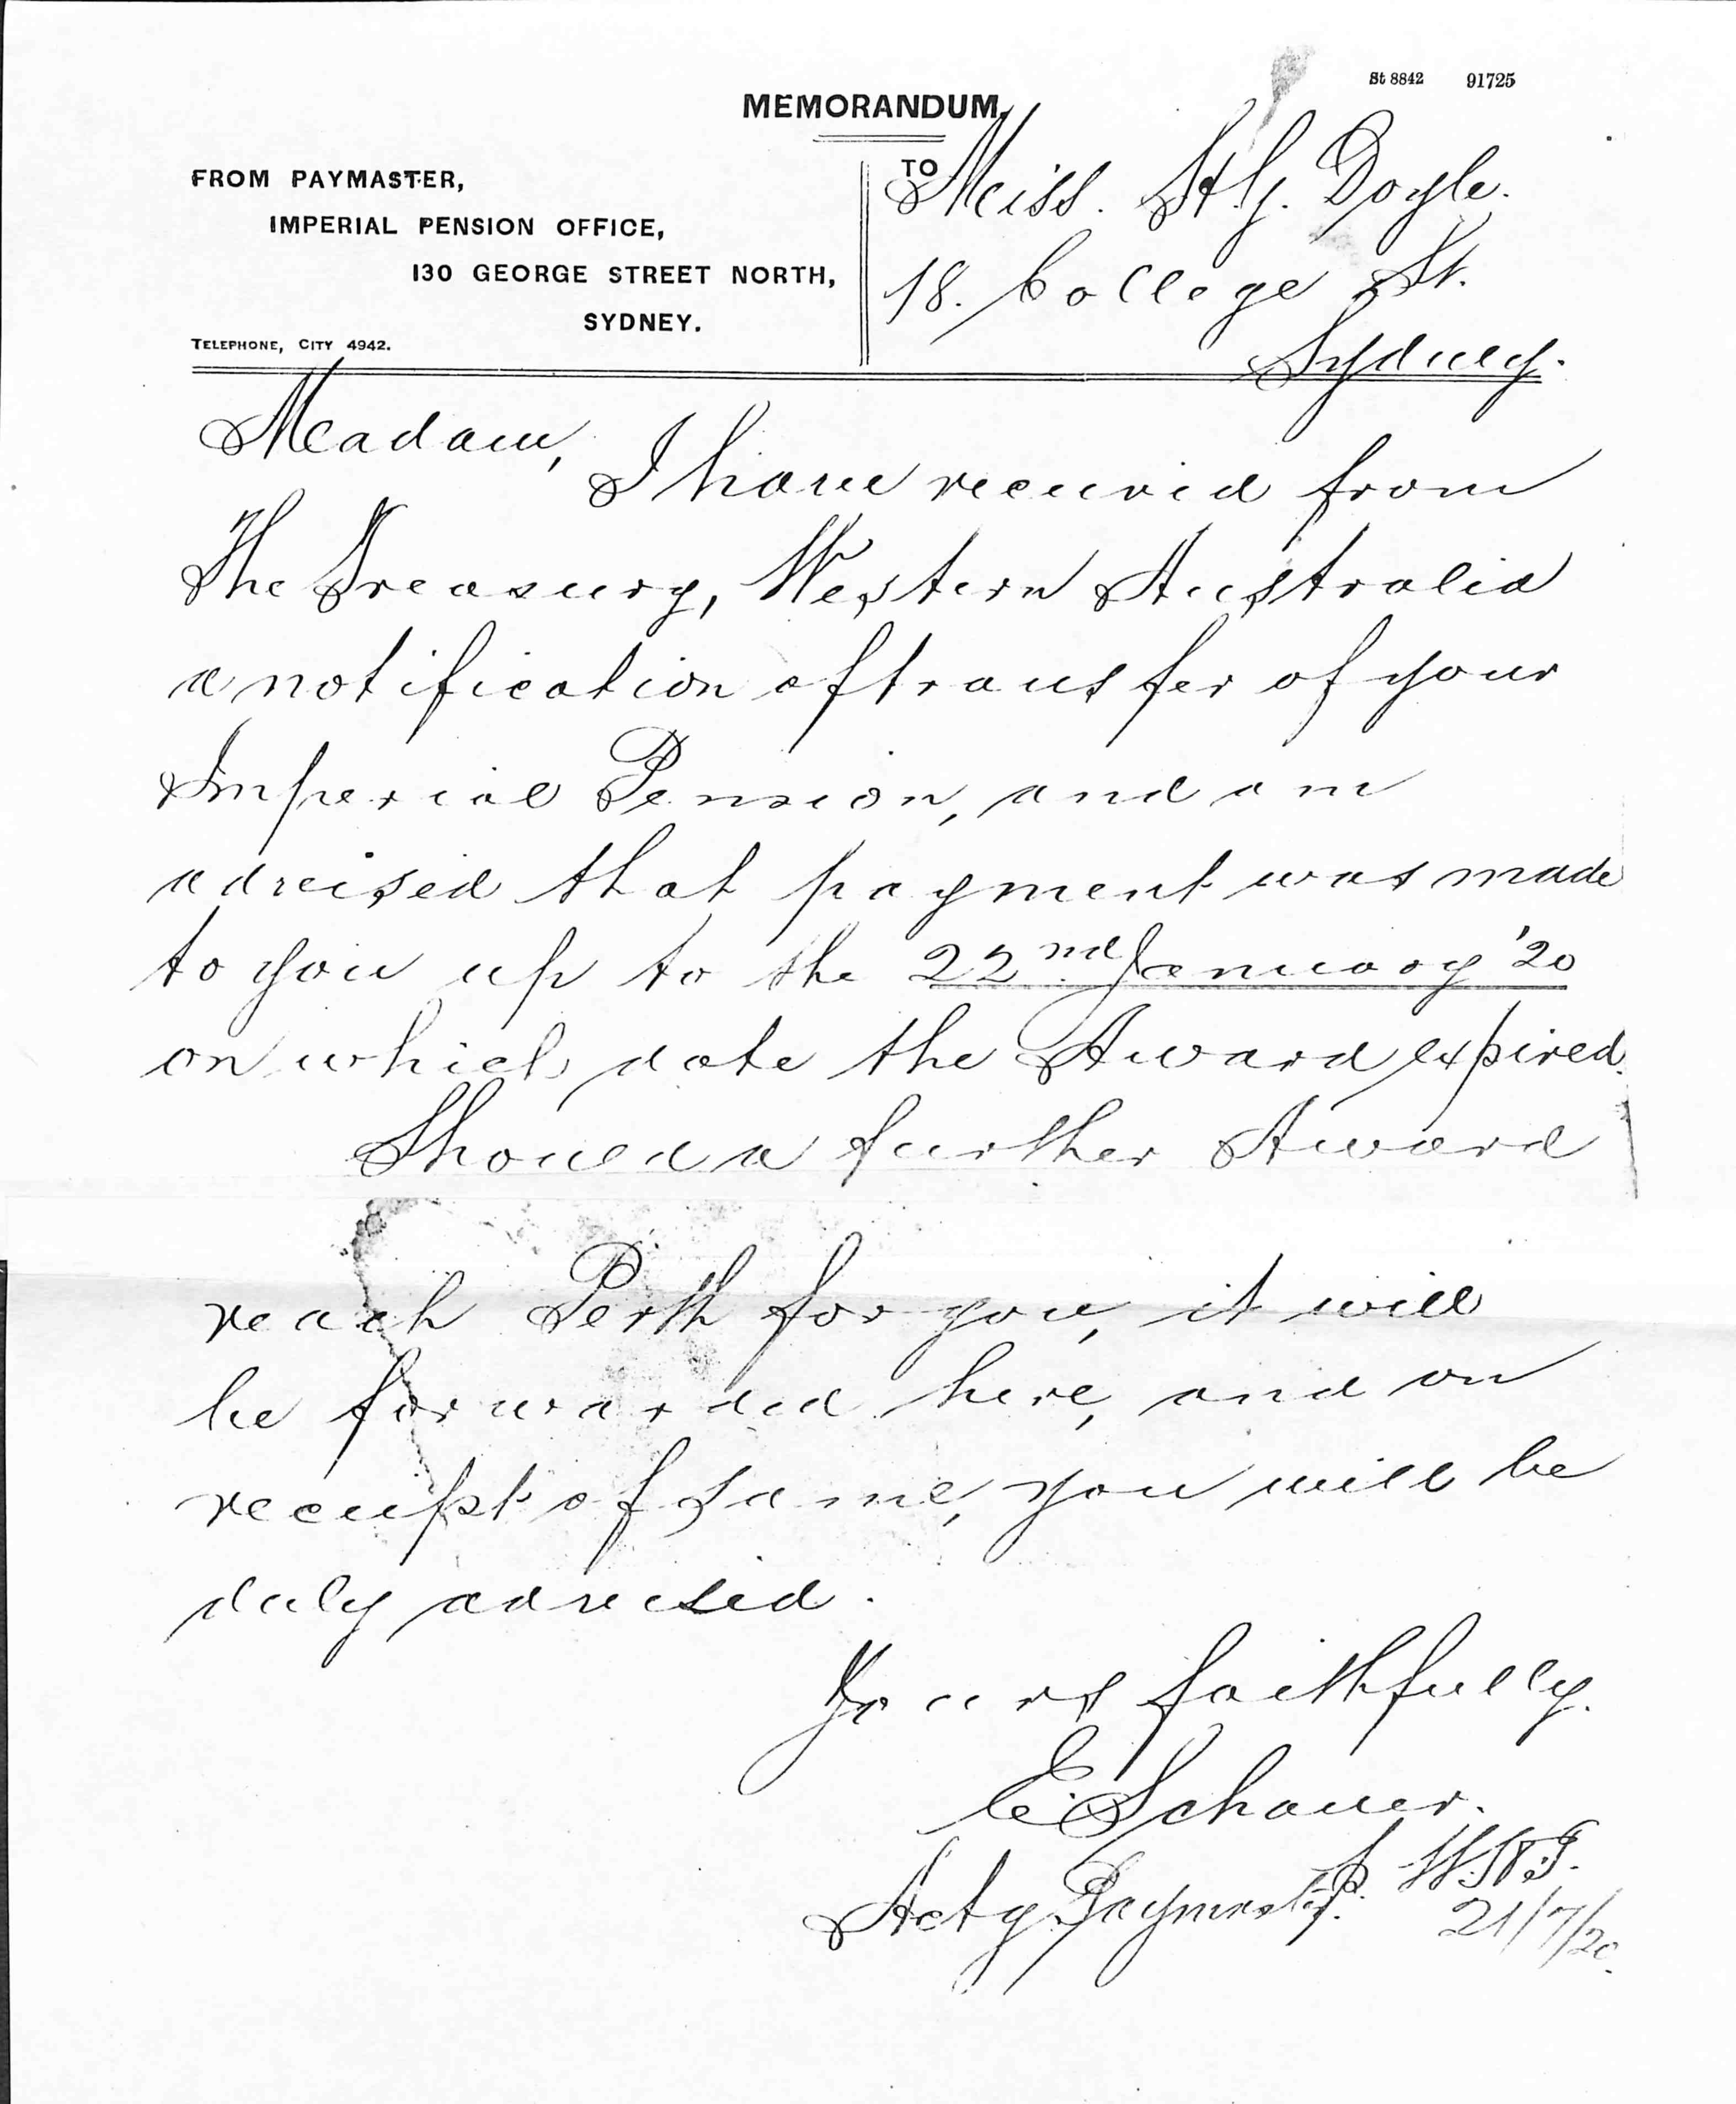 St 8842 91725
MEMORANDUM.
FROM PAYMASTER,
IMPERIAL PENSION OFFICE,
130 GEORGE STREET NORTH,
SYDNEY.
TELEPHONE, CITY 4942.
TO Miss. Doyle.
18. College St.
Sydney.
Madam,
I have received from
The Treasury, Western Australia
a notification of transfer of your
Imperial Pension, and am
advised that payment was made
to you up to the 22nd January '20
on which date the Award expired.
Should a further Award
reach Perth for you, it will
be forwarded here, and on
receipt of same, you will be
duly advised.
Yours faithfully.
E Schauer.
Actg Paymaster.
21/7/20.